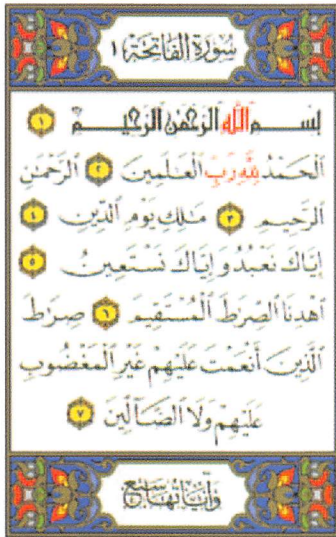 سُورَةُ الفَاتِحَةِ ١
بِسْمِ اللَّهِ الرَّحْمَٰنِ الرَّحِيمِ ١
الْحَمْدُ لِلَّهِ رَبِّ الْعَٰلَمِينَ ٢ الرَّحْمَٰنِ
الرَّحِيمِ ٣ مَٰلِكِ يَوْمِ الدِّينِ ٤
إِيَّاكَ نَعْبُدُ وَإِيَّاكَ نَسْتَعِينُ ٥
اهْدِنَا الصِّرَٰطَ الْمُسْتَقِيمَ ٦ صِرَٰطَ
الَّذِينَ أَنْعَمْتَ عَلَيْهِمْ غَيْرِ الْمَغْضُوبِ
عَلَيْهِمْ وَلَا الضَّآلِّينَ ٧
وَآيَاتُهَا سَبْعٌ